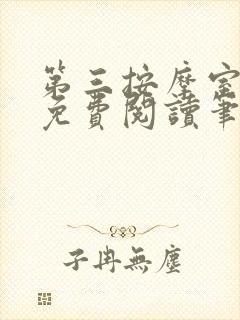 第三按摩室
免費閱讀筆
子冉無塵